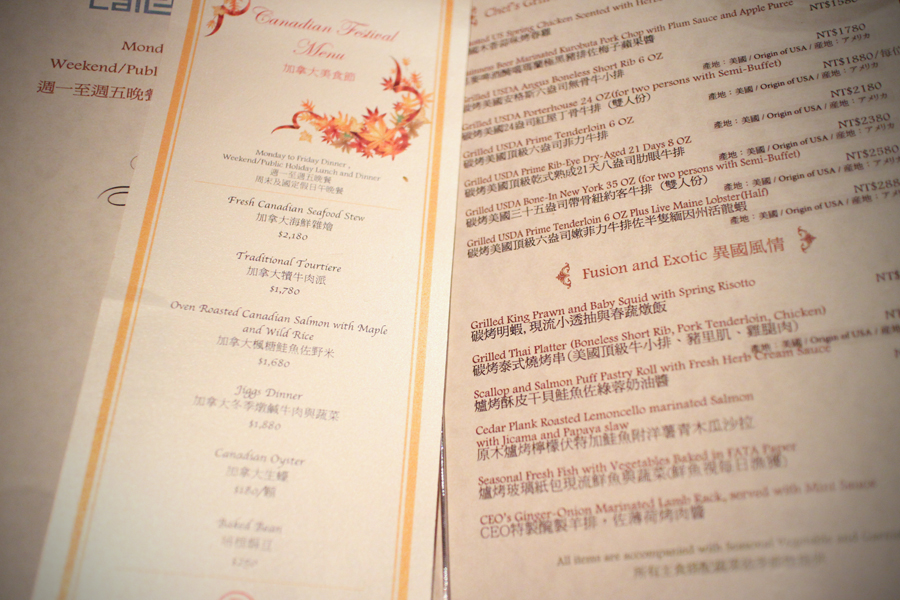 Cafe
Mond
Weekend/Publ
週一至週五晚餐
Canadian Festival
Menu
加拿大美食節
Monday to Friday Dinner ,
Weekend/Public Holiday Lunch and Dinner
週一至週五晚餐
周末及國定假日午晚餐
Fresh Canadian Seafood Stew
加拿大海鮮雜燴
$2,180
Traditional Tourtiere
加拿大犢牛肉派
$1,780
Oven Roasted Canadian Salmon with Maple
and Wild Rice
加拿大楓糖鮭魚佐野米
$1,680
Jiggs Dinner
加拿大冬季燉鹹牛肉與蔬菜
$1,880
Canadian Oyster
加拿大生蠔
$180/顆
Baked Bean
$780
Chef's Gri
US Spring Chicken Scented with Herb
NT$1580
Beer Marinated Kurobuta Pork Chop with Plum Sauce and Apple Puree
NT$1780
Grilled USDA Angus Boneless Short Rib 6 OZ
碳烤美國安格斯六盎司無骨牛小排
產地：美國 / Origin of USA / 產地：アメリカ
NT$1880/每位
Grilled USDA Porterhouse 24 OZ(for two persons with Semi-Buffet)
碳烤美國24盎司紅屋丁骨牛排 (雙人份)
產地：美國 / Origin of USA / 產地：アメリカ
NT$2180
Grilled USDA Prime Tenderloin 6 OZ
碳烤美國頂級六盎司菲力牛排
產地：美國 / Origin of USA / 產地：アメリカ
NT$2380
Grilled USDA Prime Rib-Eye Dry-Aged 21 Days 8 OZ
碳烤美國頂級乾式熟成21天八盎司肋眼牛排
產地：美國 / Origin of USA / 產地：アメリカ
NT$2580
Grilled USDA Bone-In New York 35 OZ (for two persons with Semi-Buffet)
碳烤美國三十五盎司帶骨紐約客牛排 (雙人份)
產地：美國 / Origin of USA / 產地：アメリカ
NT$288
Grilled USDA Prime Tenderloin 6 OZ Plus Live Maine Lobster(Half)
碳烤美國頂級六盎司嫩菲力牛排佐半隻緬因州活龍蝦
產地：美國 / Origin of USA / 產地：アメリカ
Fusion and Exotic 異國風情
Grilled King Prawn and Baby Squid with Spring Risotto
碳烤明蝦,現流小透抽與春蔬燉飯
NT$
Grilled Thai Platter (Boneless Short Rib, Pork Tenderloin, Chicken)
碳烤泰式燒烤串(美國頂級牛小排、豬里肌、雞腿肉)
產地：美國 / Origin of USA / 產地：アメリカ
Scallop and Salmon Puff Pastry Roll with Fresh Herb Cream Sauce
爐烤酥皮干貝鮭魚佐綠蓉奶油醬
Cedar Plank Roasted Lemoncello marinated Salmon
with Jicama and Papaya slaw
原木爐烤檸檬伏特加鮭魚附洋薯青木瓜沙拉
Seasonal Fresh Fish with Vegetables Baked in FATA Paper
爐烤玻璃紙包現流鮮魚與蔬菜(鮮魚視每日漁獲)
CEO's Ginger-Onion Marinated Lamb Rack, served with Mint Sauce
CEO特製醃製羊排，佐薄荷烤肉醬
All items are accompanied with Seasonal Vegetable and